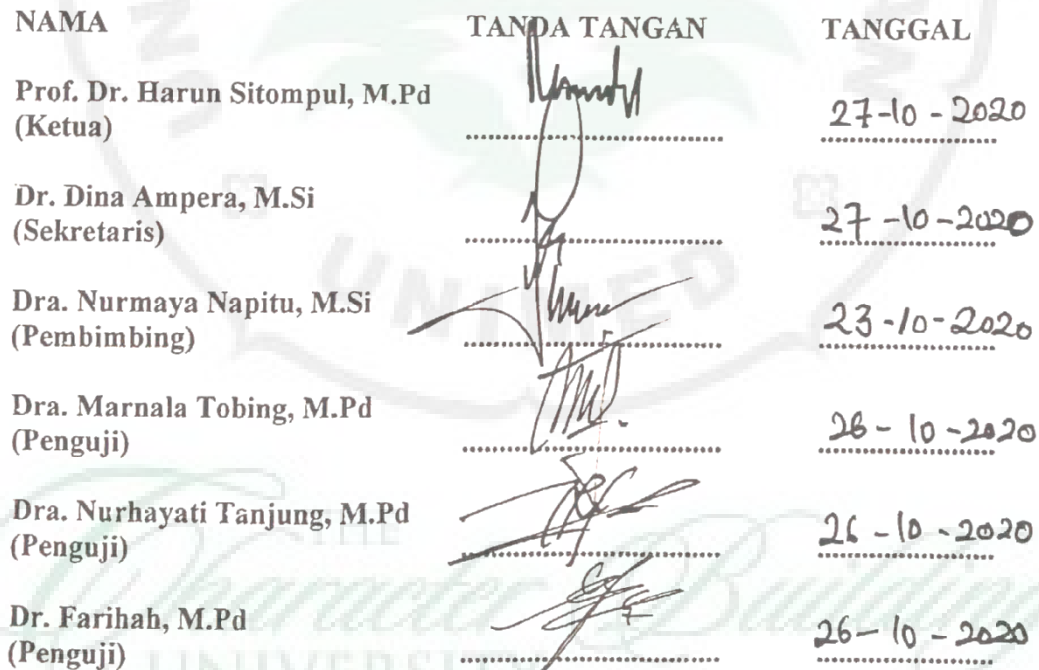 NAMA TANDA TANGAN TANGGAL
Prof. Dr. Harun Sitompul, M.Pd
(Ketua) 27-10-2020
Dr. Dina Ampera, M.Si
(Sekretaris) 27-10-2020
UNIMED
Dra. Nurmaya Napitu, M.Si
(Pembimbing) 23-10-2020
Dra. Marnala Tobing, M.Pd
(Penguji) 26-10-2020
Dra. Nurhayati Tanjung, M.Pd
(Penguji) 26-10-2020
THE
Character Building
Dr. Farihah, M.Pd
(Penguji) 26-10-2020
UNIVERSITY